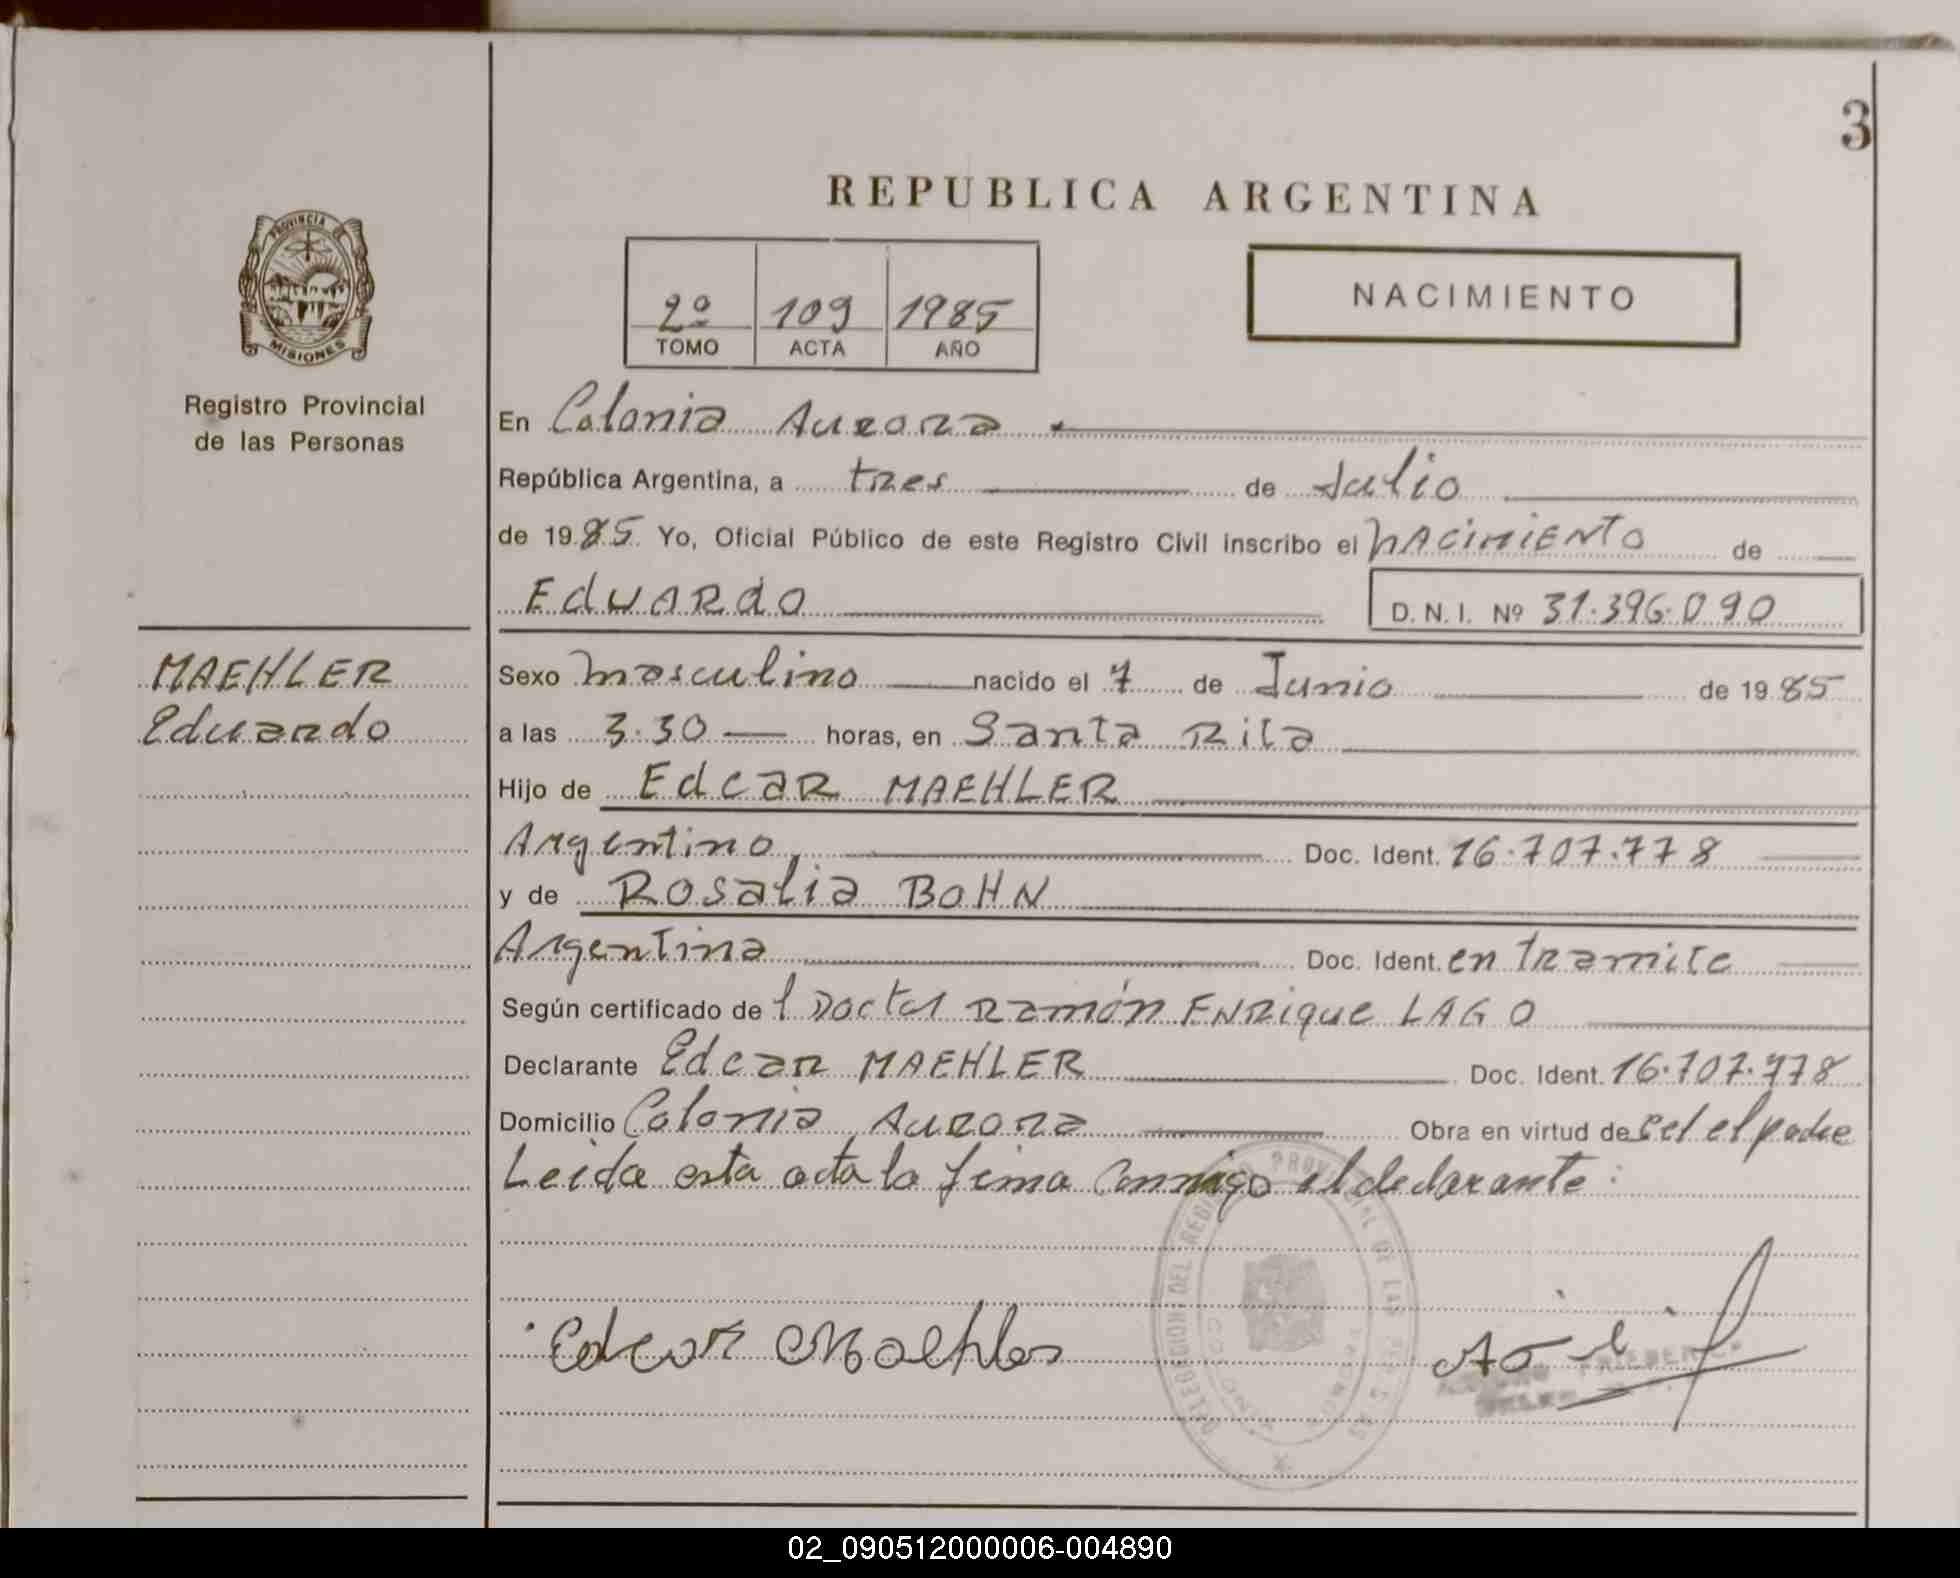 3
REPUBLICA ARGENTINA
PROVINCIA DE
MISIONES
2º 109 1985
TOMO ACTA AÑO
NACIMIENTO
Registro Provincial
de las Personas
En Colonia Aurora
República Argentina, a tres de Julio
de 1985 Yo, Oficial Público de este Registro Civil inscribo el NACIMIENTO de
EdUARdO D.N.I. Nº 31.396.090
MAEHLER
Eduardo
Sexo masculino nacido el 7 de Junio de 1985
a las 3.30 horas, en Santa Rita
Hijo de EdcaR MAEHLER
Argentino, Doc. Ident. 16.707.778
y de Rosalia BOHN
Argentina Doc. Ident. en tramite
Según certificado del Doctor Ramón ENRique LAGO
Declarante Edcar MAEHLER Doc. Ident. 16.707.778
Domicilio Colonia Aurora Obra en virtud de ser el padre
Leida esta acta la firma conmigo el declarante:
DELEGACION DEL REGISTRO PROVINCIAL DE LAS PERSONAS
COLONIA AURORA
Edcar Maehler
02_090512000006-004890